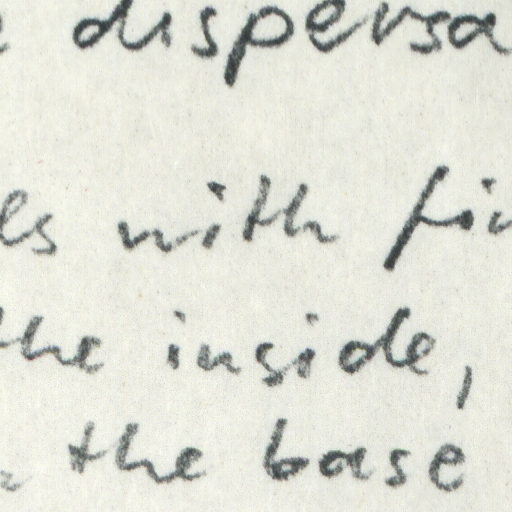 dispersa
es with fin
the inside,
the base